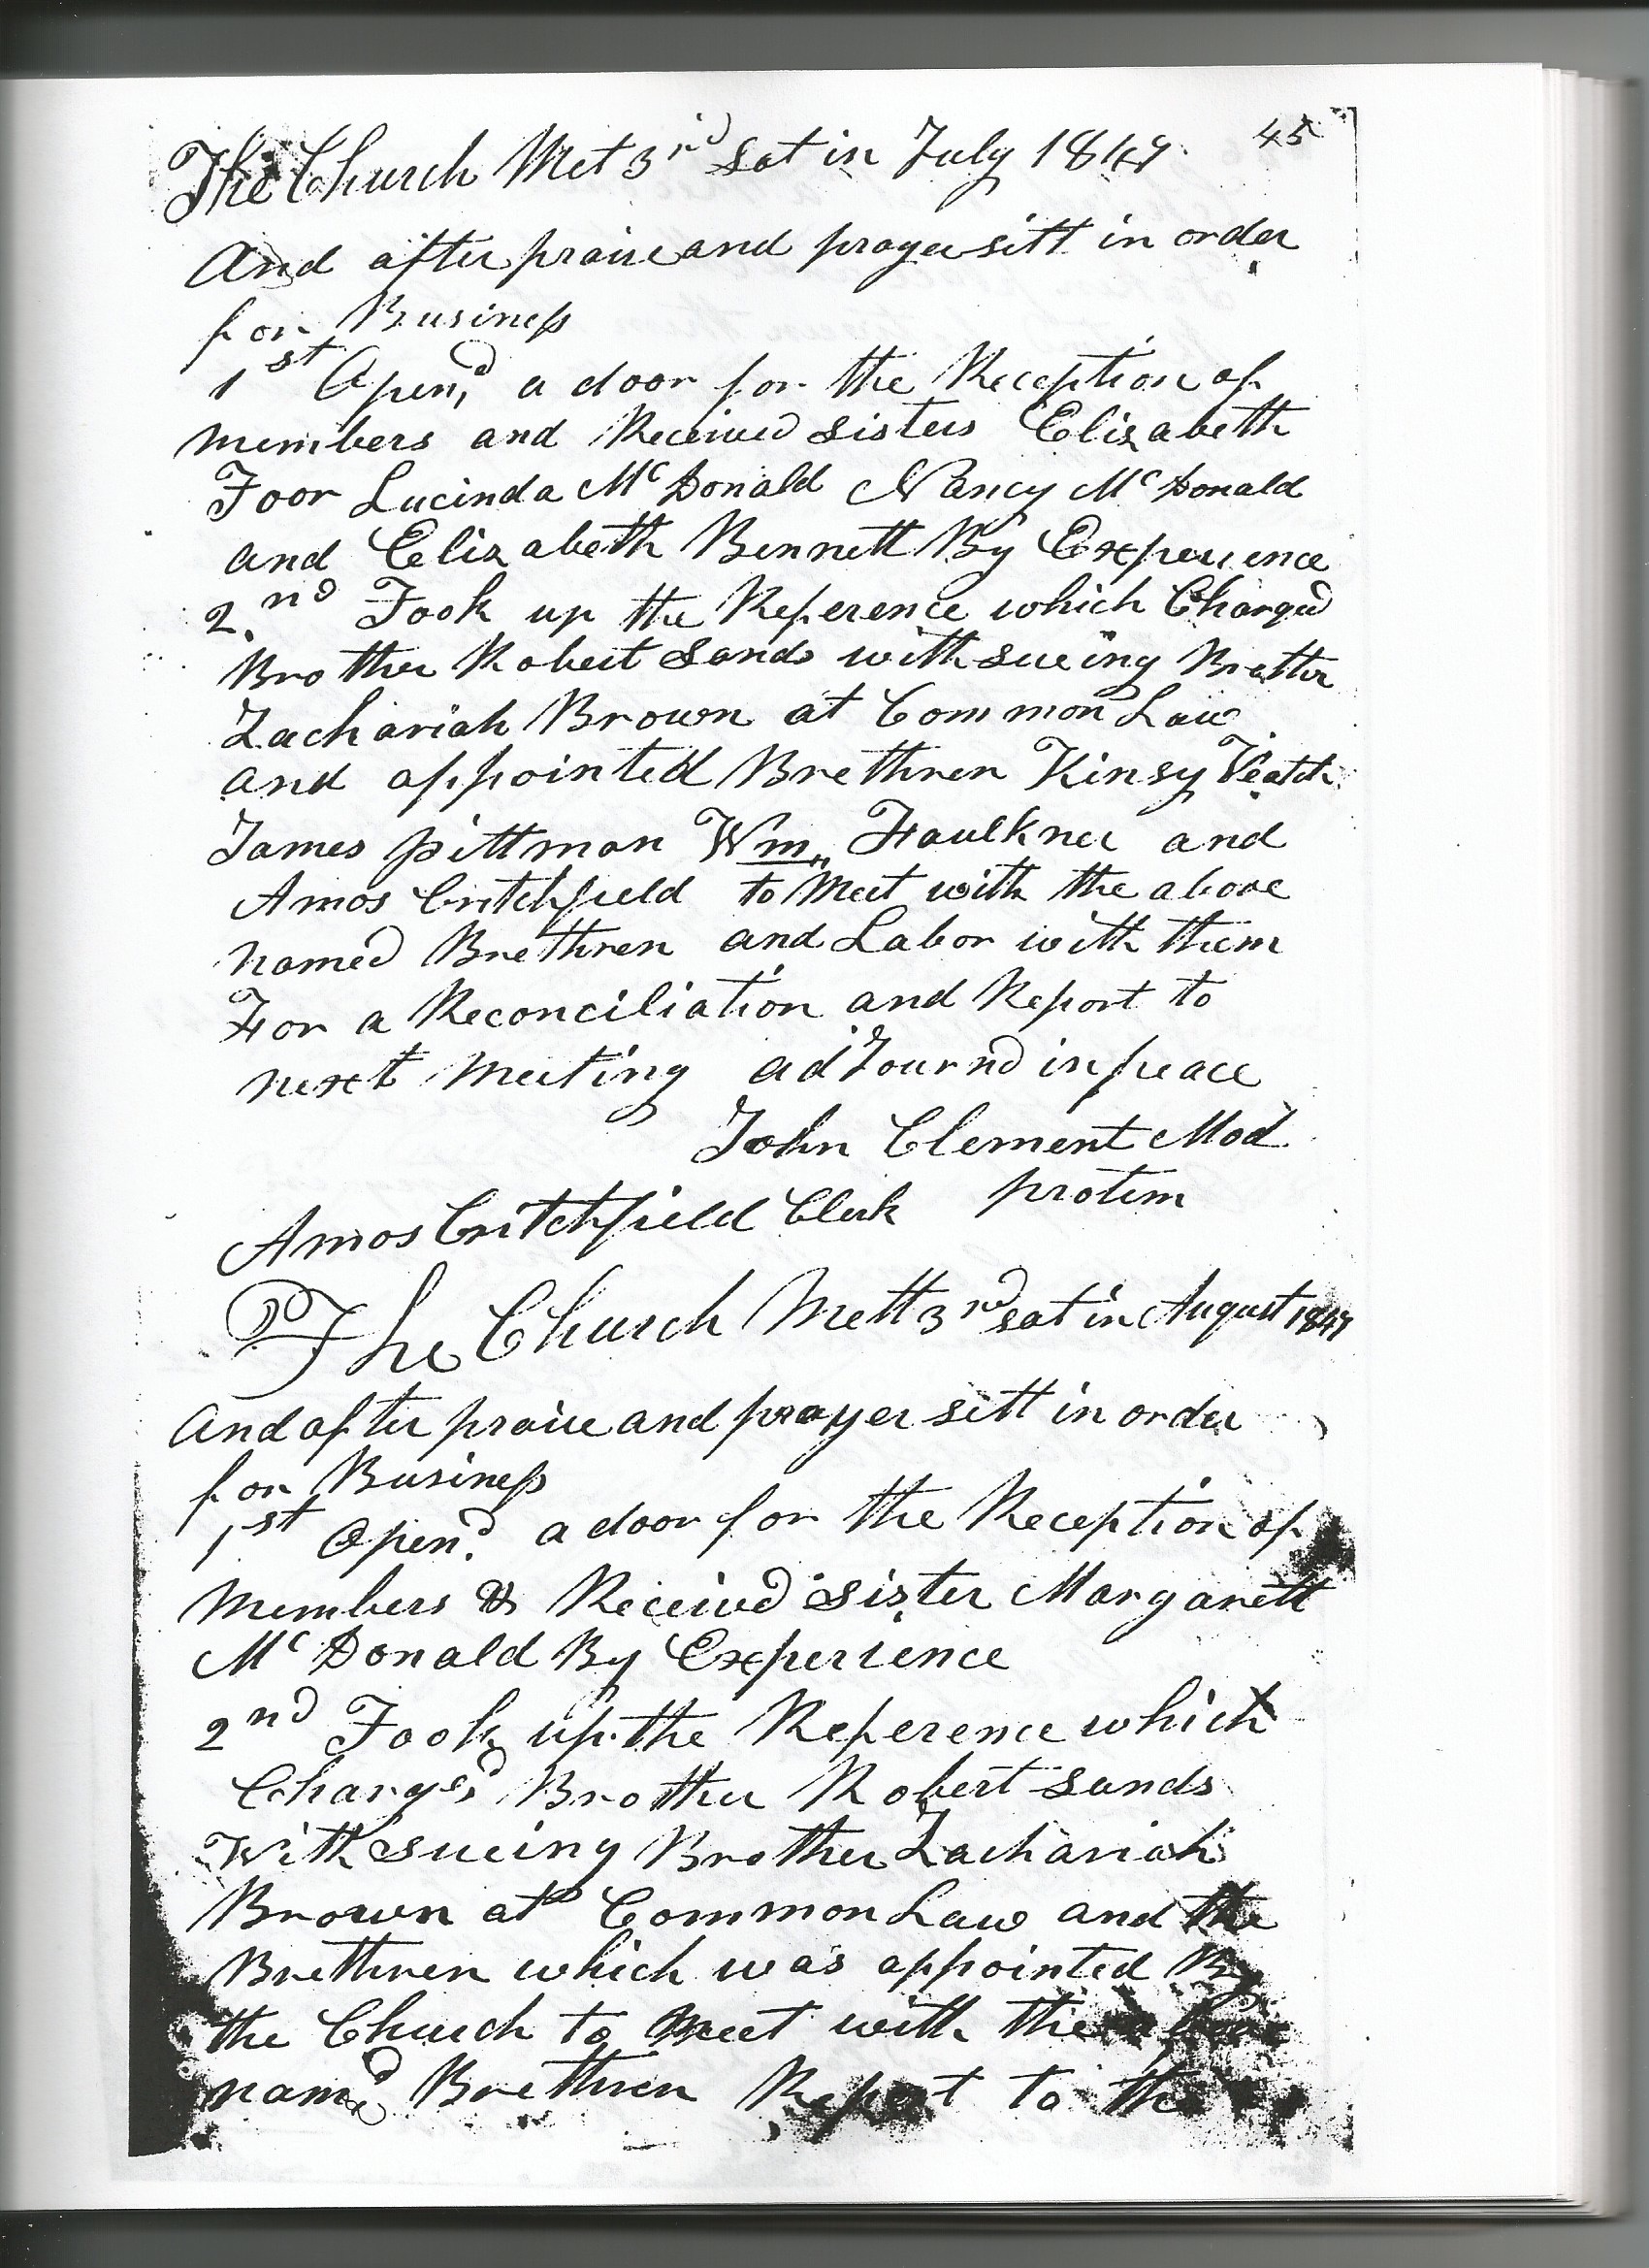 45
The Church Met 3rd Sat in July 1849
And after praise and prayer sitt in order
for Business
1st Open,d a door for the Reception of
members and Received sisters Elizabeth
Foor Lucinda McDonald Nancy McDonald
and Elizabeth Bennett By Experience
2nd Took up the Reference which Charged
Brother Robert Sands with sueing Brother
Zachariah Brown at Common Law
and appointed Brethren Kinsy Veatch
James pittman Wm,, Faulkner and
Amos Critchfield to Meet with the above
named Brethren and Labor with them
For a Reconciliation and Report to
next Meeting adJournd in peace
John Clement Mod
protem
Amos Critchfield Clerk
The Church Mett 3rd sat in August 1849
And after praise and prayer sitt in order
for Business
1st Open.d a door for the Reception of
Members & Received Sister Margarett
McDonald By Experience
2nd Took up the Reference which
Charged Brother Robert Sands
With sueing Brother Zachariah
Brown at Common Law and the
Brethren which was appointed By
the Church to Meet with the above
named Brethren Report to the